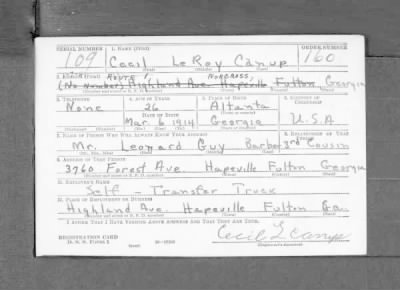 SERIAL NUMBER 1. NAME (Print) ORDER NUMBER
109 Cecil Le Roy Canup 160
ROUTE 1 NORCROSS,
(No Number) Highland Ave. Hapeville Fulton Georgia
3. TELEPHONE 4. AGE IN YEARS 5. PLACE OF BIRTH 6. COUNTRY OF CITIZENSHIP
None 26 Altanta
DATE OF BIRTH
Mar. 6 1914 Georgia U.S.A.
7. NAME OF PERSON WHO WILL ALWAYS KNOW YOUR ADDRESS 8. RELATIONSHIP OF THAT PERSON
Mr. Leonard Guy Barber 3rd Cousin
9. ADDRESS OF THAT PERSON
3760 Forest Ave. Hapeville Fulton Georgia
10. EMPLOYER'S NAME
Self - Transfer Truck
11. PLACE OF EMPLOYMENT OR BUSINESS
Highland Ave. Hapeville Fulton Ga.
I AFFIRM THAT I HAVE VERIFIED ABOVE ANSWERS AND THAT THEY ARE TRUE.
REGISTRATION CARD
D. S. S. Form 1
Cecil L Canup